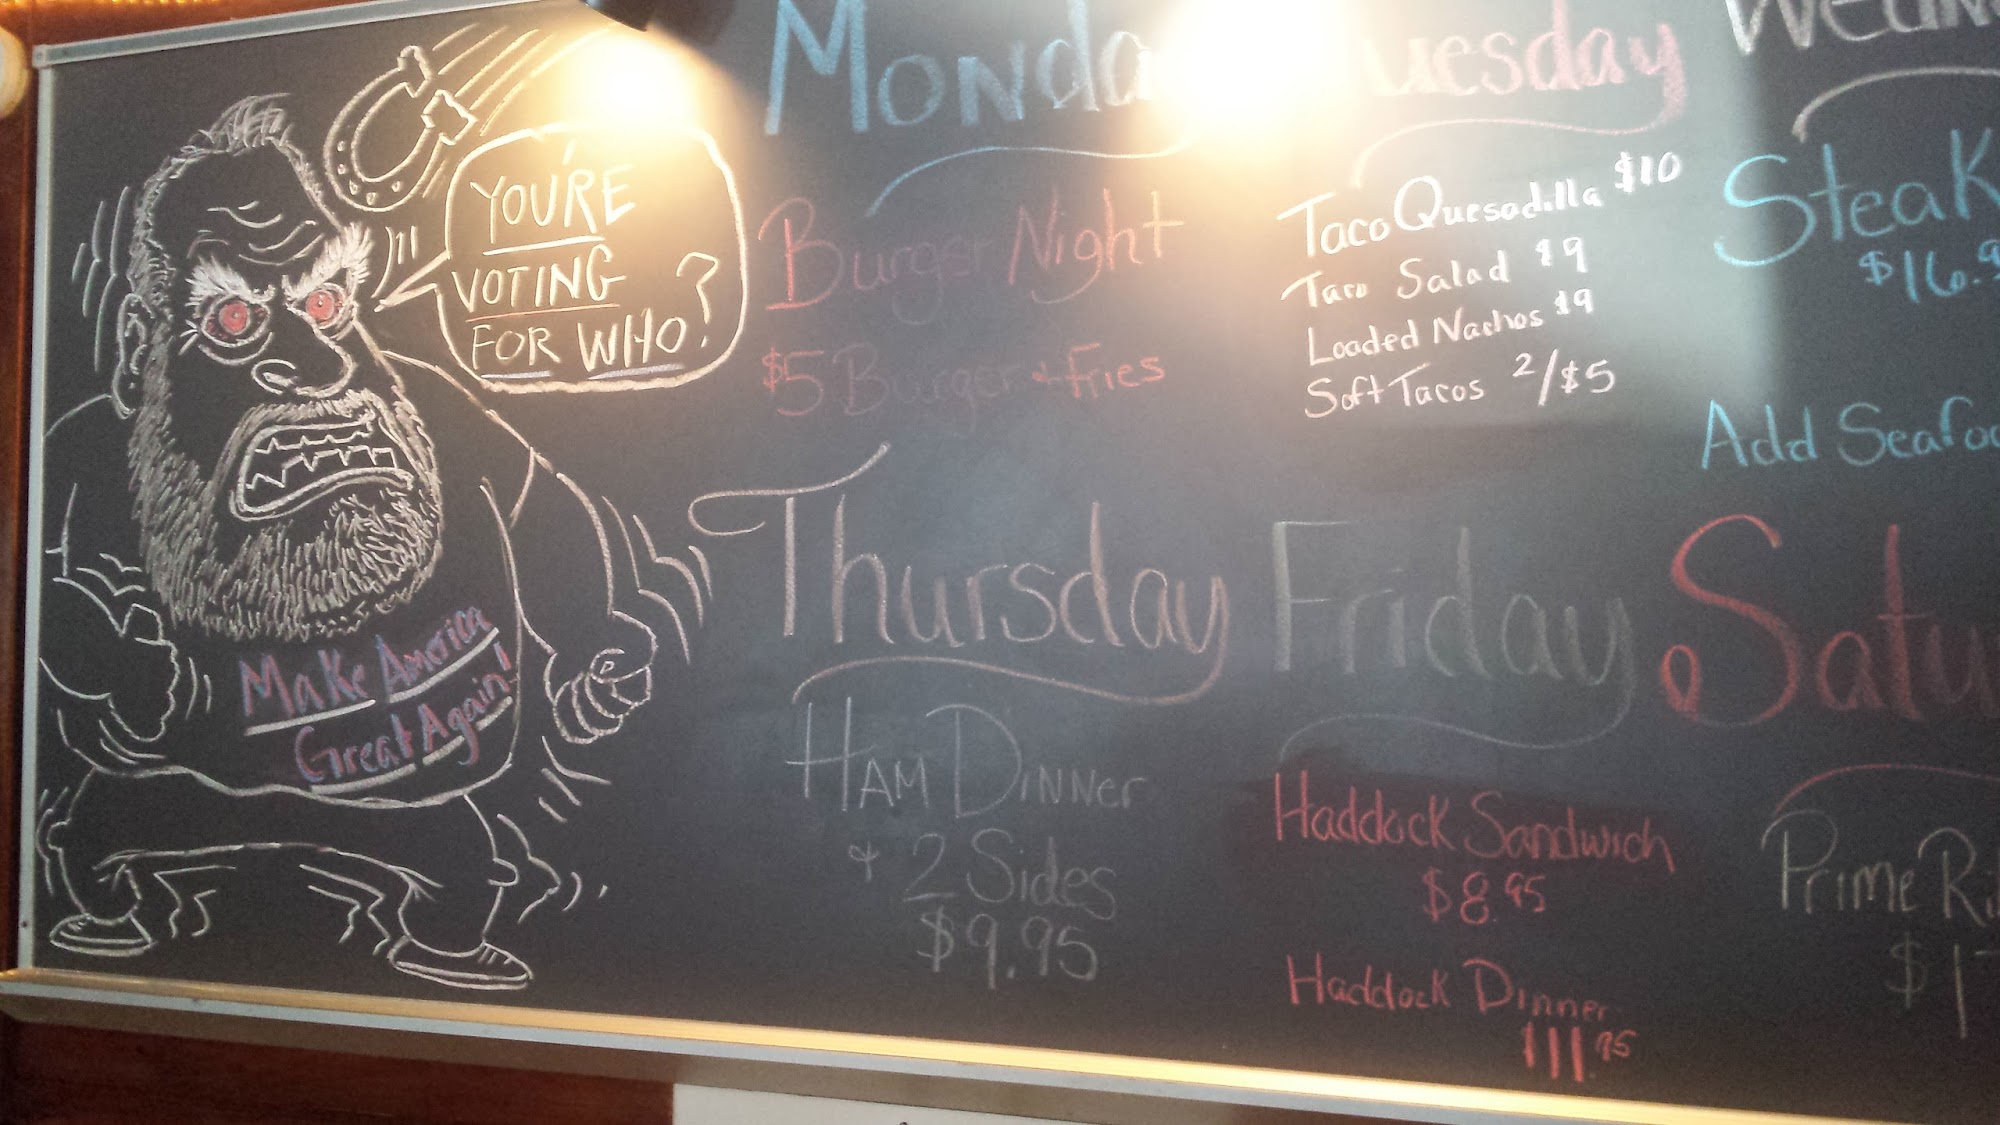 YOU'RE
VOTING
FOR WHO?
Make America
Great Again!
Monda
Burger Night
$5 Burger + Fries
uesday
Taco Quesadilla $10
Taco Salad $9
Loaded Nachos $9
Soft Tacos 2/$5
Wedn
Steak
$16.9
Add Seafoo
Thursday
Ham Dinner
+ 2 Sides
$9.95
Friday
Haddock Sandwich
$8.95
Haddock Dinner
$11.95
Satu
Prime Ri
$1